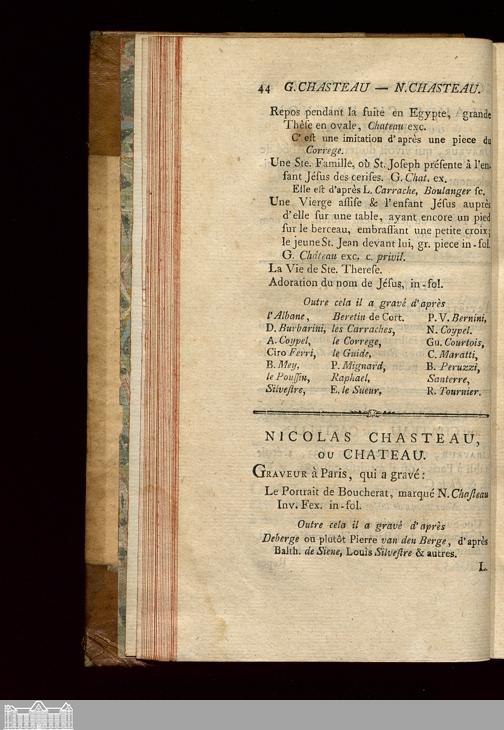 44 G. CHASTEAU — N. CHASTEAU.
Repos pendant la fuite en Egypte, grande
Thêse en ovale, Chateau exc.
C'eſt une imitation d'après une piece du
Correge.
Une Ste. Famille, où St. Joſeph préſente à l'en-
fant Jéſus des ceriſes. G. Chat. ex.
Elle eſt d'après L. Carrache, Boulanger ſc.
Une Vierge aſſiſe & l'enfant Jéſus auprès
d'elle ſur une table, ayant encore un pied
ſur le berceau, embraſſant une petite croix;
le jeune St. Jean devant lui, gr. piece in-fol.
G. Château exc. c. privil.
La Vie de Ste. Thereſe.
Adoration du nom de Jéſus, in-fol.
Outre cela il a gravé d'après
l'Albane, Beretin de Cort. P. V. Bernini,
D. Barbarini, les Carraches, N. Coypel.
A. Coypel, le Correge, Gu. Courtois,
Ciro Ferri, le Guide, C. Maratti,
B. Mey, P. Mignard, B. Peruzzi,
le Pouſſin, Raphael, Santerre,
Silveſtre, E. le Sueur, R. Tournier.
NICOLAS CHASTEAU,
OU CHATEAU.
GRAVEUR à Paris, qui a gravé:
Le Portrait de Boucherat, marqué N. Chaſteau
Inv. Fex. in-fol.
Outre cela il a gravé d'après
Deberge ou plutôt Pierre van den Berge, d'après
Balth. de Siene, Louis Silveſtre & autres.
L.